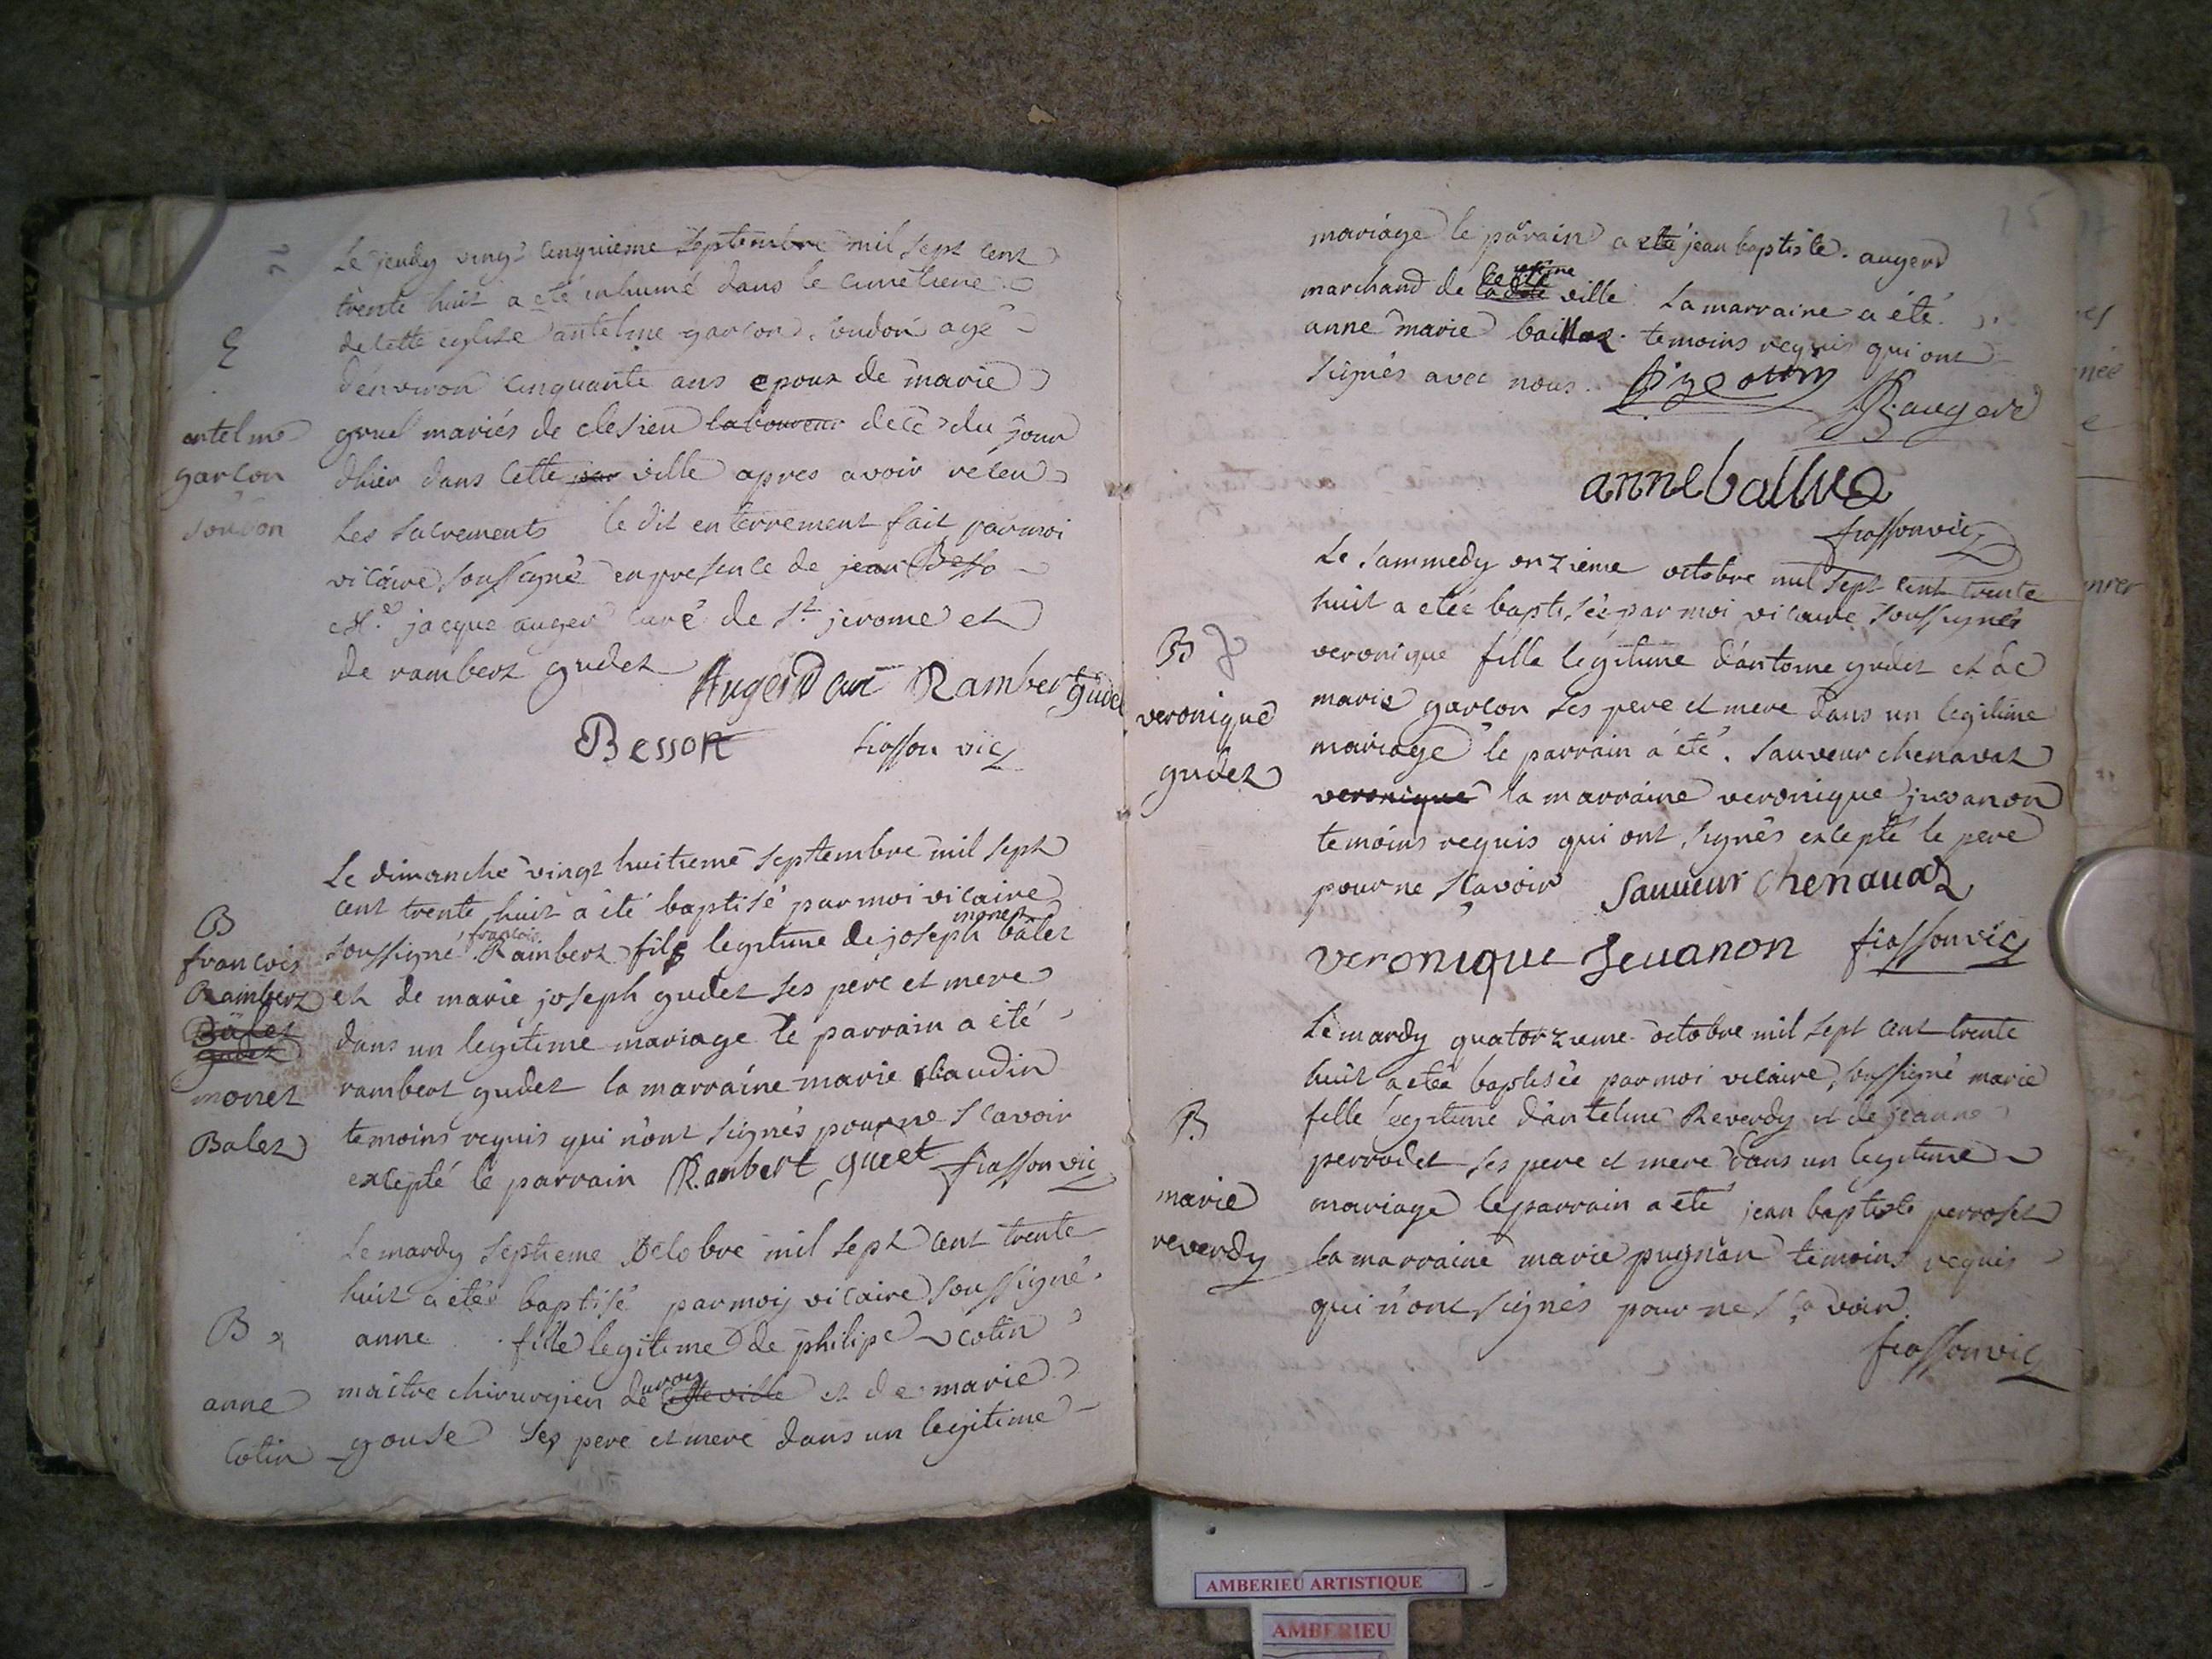 Le jeudy vingt cinquieme septembre mil sept cent
trente huit a eté inhumé dans le cimetiere
de cette eglise antelme garcon, soudon agé
d'environ cinquante ans epoux de marie
gruel mariés de clesieu laboureur decedé du jour
dhier dans cette par ville apres avoir réceu
Les sacrements le dit enterrement fait par moi
vicaire soussigné en presence de jean Besso
et Me jacque auger curé de St jerome et
de rambert gudet
Augerd curé Rambert gudet
Besson vic
E
antelme
garcon
soudon
Le dimanche vingt huitieme septembre mil sept
cent trente huit a été baptisé par moi vicaire
soussigné françois Rambert fils legitime de joseph monet balet
et de marie joseph gudet ses pere et mere
dans un legitime mariage le parrain a été
rambert gudet la marraine marie claudin
temoins requis qui n'ont signés pour ne scavoir
excepté le parrain Rambert guet fiassonvic
B
françois
Rambert
Balet
gudet
monet
Balet
Le mardy septieme octobre mil sept cent trente
huit a etée baptisé par moy vicaire soussigné
anne fille legitime de philipe cotin
maitre chirurgien de cette ville et de marie
gouse ses pere et mere dans un legitime
B
anne
Cotin
mariage le parain a eté jean baptiste augerd
marchand de ville La marraine a été
anne marie temoins requis qui ont
signés avec nous. augerd
anne ballue
fiassonvic
Le sammedy onzieme octobre mil sept cent trente
huit a eteé baptisée par moi vicaire soussignés
veronique fille legitime d'antoine gudet et de
marie garcon ses pere et mere dans un legitime
mariage le parrain a été. sauveur chenavaz
veronique la marraine veronique juvanon
temoins requis qui ont signés excepté le pere
pour ne sçavoir sauveur chenauaz
veronique Jeuanon fiassonvic
B
veronique
gudet
Le mardy quatorzieme octobre mil sept cent trente
huit a etée baptisée par moi vicaire soussigné marie
fille legitime d'antelme Reverdy et de jeanne
perrodet ses pere et mere dans un legitime
mariage le parrain a eté jean baptiste perroset
la marraine marie pugnan temoins requis
qui n'ont signés pour ne sçavoir.
fiassonvic
B
marie
reverdy
AMBERIEU ARTISTIQUE
AMBERIEU